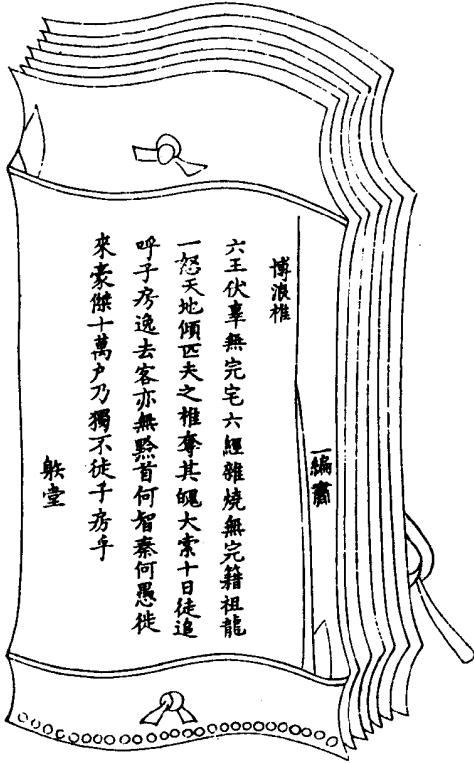 一編書
博浪椎
六王伏辜無完宅六經雜燒無完籍祖龍
一怒天地傾匹夫之椎奪其魄大索十日徒追
呼子房逸去客亦無黔首何智秦何愚徙
來豪傑十萬户乃獨不徙子房乎
堂